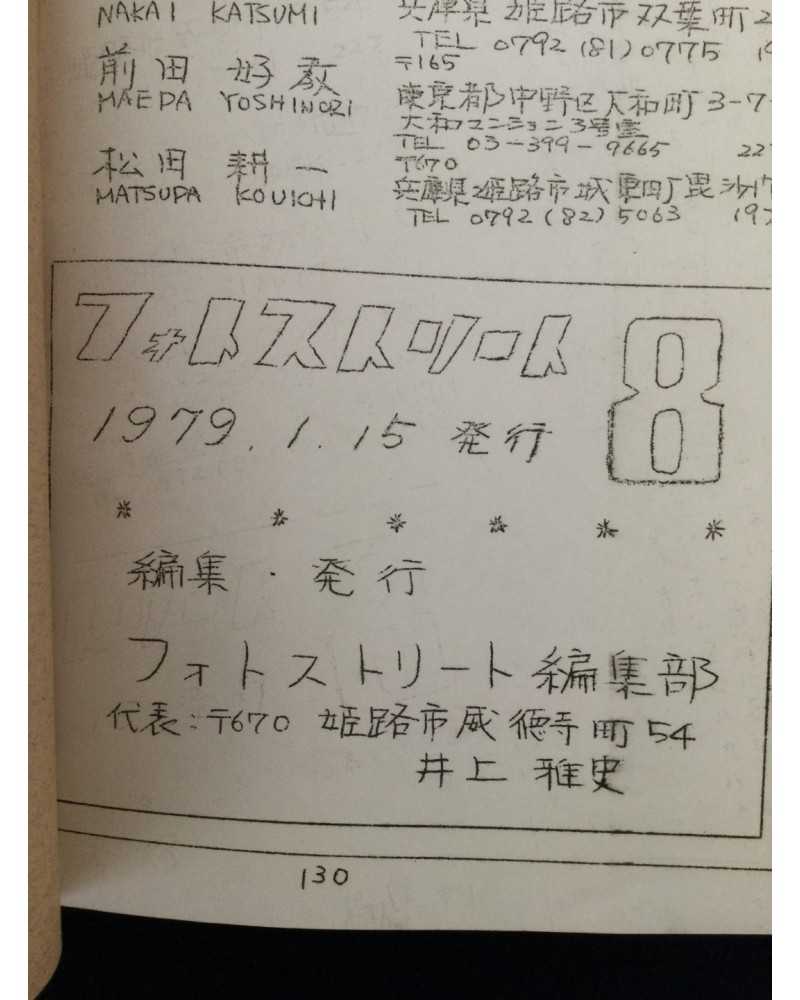 NAKAI KATSUMI
兵庫県姫路市双葉町2
TEL 0792 (81) 0775 19
前田 好教
MAEDA YOSHINORI
〒165
東京都中野区大和町3-7-
大和マンション3号室
TEL 03-399-9665 227
松田 耕一
MATSUDA KOUICHI
〒670
兵庫県姫路市城東町毘沙門
TEL 0792 (82) 5063 197
フォトストリート 8
1979.1.15 発行
* * * * * *
編集・発行
フォトストリート編集部
代表:〒670 姫路市威徳寺町54
井上 雅史
130